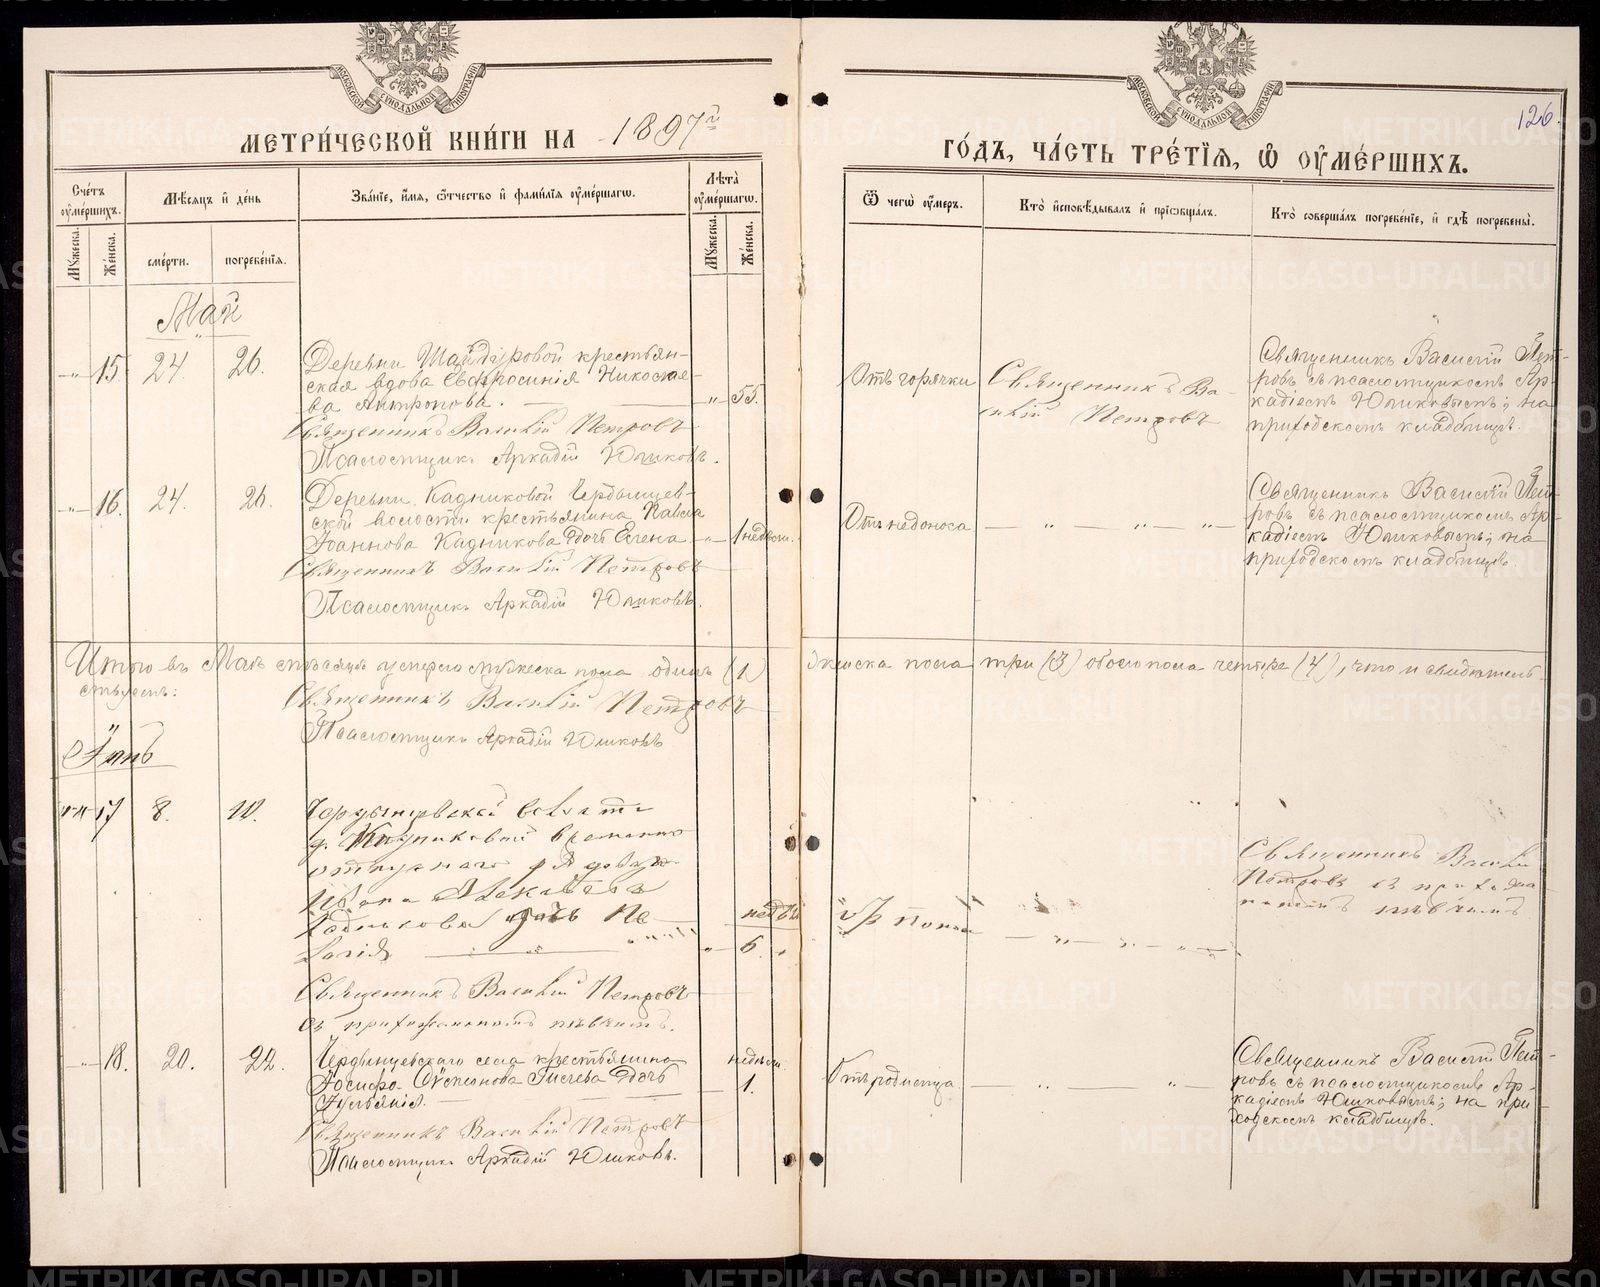 МЕТРИЧЕСКОЙ КНИГИ НА 1897й
Счетъ умершихъ.
Мужеска.
Женска.
Мѣсяцъ и день
смерти.
погребенія.
Званіе, имя, отчество и фамилія умершагѡ.
Лѣта умершагѡ.
Мужеска.
Женска.
Май
15 24 26
Деревни Шайдуровой крестьян-
ская вдова Евфросинія Николае-
ва Антропова. — „ 55.
Священникъ Василій Петровъ
Псаломщикъ Аркадій Юшковъ.
16. 24. 26.
Деревни Кадниковой Чердынцев-
ской волости крестьянина Павла
Іоаннова Кадникова дочь Елена — „ 1 недѣли.
Священникъ Василій Петровъ
Псаломщикъ Аркадій Юшковъ.
Итого въ Маѣ мѣсяцѣ умерло мужеска пола одинъ (1)
Священникъ Василій Петровъ
Псаломщикъ Аркадій Юшковъ
Іюнь
17 8. 10.
волости
д. Кадниковой временно
отпускного рядоваго
Ивана
Кадникова дочь Пе-
лагія — „ 6
недѣль
Священникъ Василій Петровъ
съ
18. 20. 22.
села крестьянина
Іосифа дочь
Іуліанія. — 1.
недѣли
Священникъ Василій Петровъ
Псаломщикъ Аркадій Юшковъ.
126.
ГОДЪ, ЧАСТЬ ТРЕТІЯ, Ѡ УМЕРШИХЪ.
Ѿ чегѡ умеръ.
Кто исповѣдывалъ и пріобщалъ.
Кто совершалъ погребеніе, и гдѣ погребены.
Отъ горячки
Священникъ Ва-
силій Петровъ
Священникъ Василій Пет-
ровъ съ псаломщикомъ Ар-
кадіемъ Юшковымъ; на
приходскомъ кладбищѣ.
Отъ недоноса — „ — „ — „ —
Священникъ Василій Пет-
ровъ съ псаломщикомъ Ар-
кадіемъ Юшковымъ; на
приходскомъ кладбищѣ.
женска пола три (3) обоего пола четыре (4), что и свидѣтель-
ствуемъ:
Священникъ Василій
Петровъ съ
Отъ родимца — „ — „ —
Священникъ Василій Пет-
ровъ съ псаломщикомъ Ар-
кадіемъ Юшковымъ; на при-
ходскомъ кладбищѣ.
METRIKI.GASO-URAL.RU